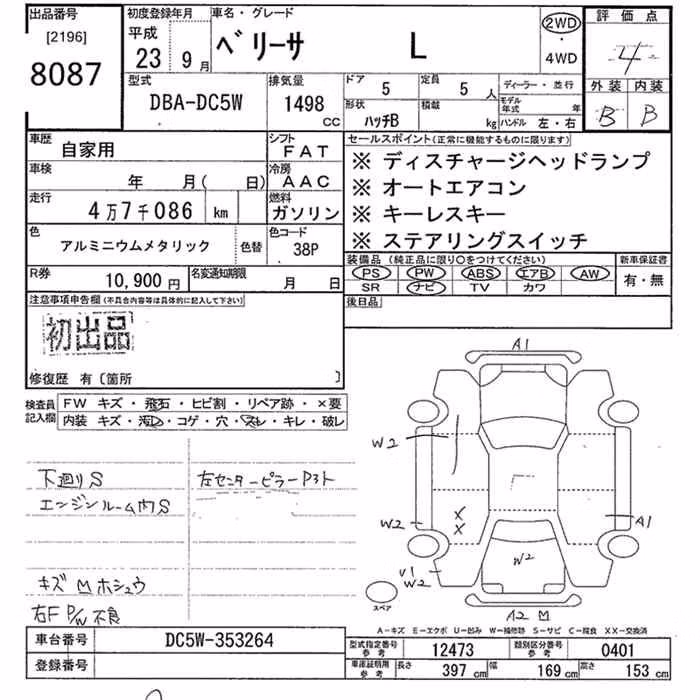 出品番号
[2196]
8087
初度登録年月
平成
23 9月
車名・グレード
ベリーサ L
2WD
・
4WD
評価点
4
外装 内装
B B
型式
DBA-DC5W
排気量
1498
CC
ドア
5
定員
5 人
形状
ハッチB
積載
kg
ディーラー・並行
モデル年式 年
ハンドル 左・右
車歴
自家用
シフト
FAT
車検
年 月( 日)
冷房
AAC
走行
4万7千086 km
燃料
ガソリン
色
アルミニウムメタリック
色替
色コード
38P
R券
10,900 円
名変通知期限
月 日
セールスポイント(正常に機能するものに限ります)
※ ディスチャージヘッドランプ
※ オートエアコン
※ キーレスキー
※ ステアリングスイッチ
装備品 (純正品に限り○をつけてください)
PS PW ABS エアB AW
SR ナビ TV カワ
新車保証書
有・無
後日品
注意事項申告欄(不具合内容等は具体的に記入して下さい)
初出品
修復歴 有〔箇所 〕
検査員記入欄
FW キズ・飛石・ヒビ割・リペア跡・×要
内装 キズ・汚れ・コゲ・穴・スレ・キレ・破レ
下廻りS
エンジンルーム内S
左センターピラーP3ト
キズ M ホシュウ
右F P/W 不良
A1
W2
W2
V1
W2
X
X
W2
A1
A2 M
スペア
A−キズ E−エクボ U−凹み W−補修跡 S−サビ C−腐食 XX−交換済
車台番号
DC5W-353264
登録番号
型式指定番号 参考
12473
類別区分番号 参考
0401
車庫証明用 参考
長さ 397 cm
幅 169 cm
高さ 153 cm